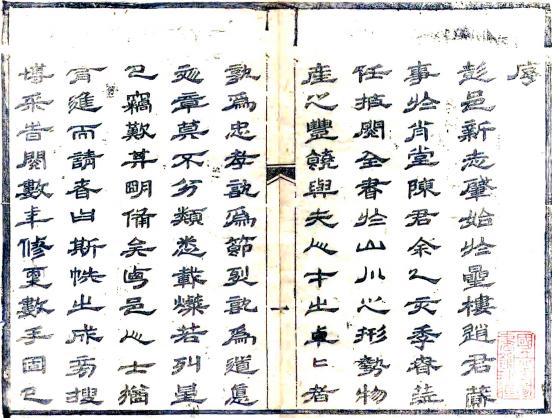 序
彭邑新志肇始於曐樓趙君蕆
事於肖堂陳君余乙亥季春蒞
任披閱全書於山川之形勢物
產之豐饒與夫人才之卓卓者
孰爲忠孝孰爲節烈孰爲道悳
文章莫不分類悉載燦若列星
已竊歎其明備矣邑人士猶
有進而請者曰斯帙之成旁搜
博采昔閱數年修更數手固已